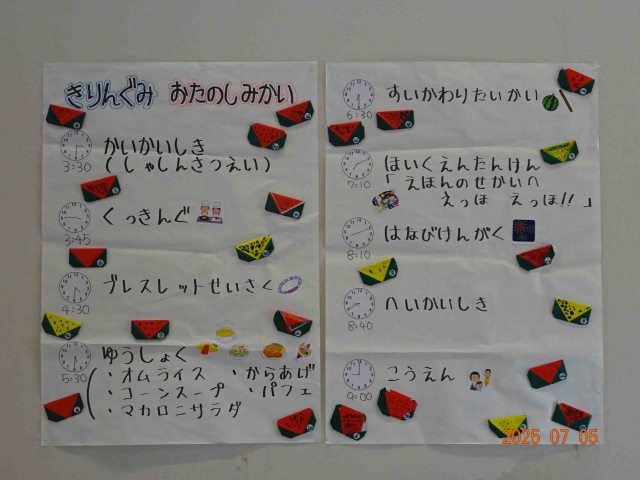 きりんぐみ おたのしみかい
3:30
かいかいしき
(しゃしんさつえい)
3:45
くっきんぐ
4:30
ブレスレットせいさく
5:30
ゆうしょく
・オムライス ・からあげ
・コーンスープ ・パフェ
・マカロニサラダ
6:30
すいかわりたいかい
7:10
ほいくえんたんけん
「えほんのせかいへ
えっほ えっほ!!」
8:10
はなびけんがく
8:40
へいかいしき
9:00
こうえん
2025 07 05